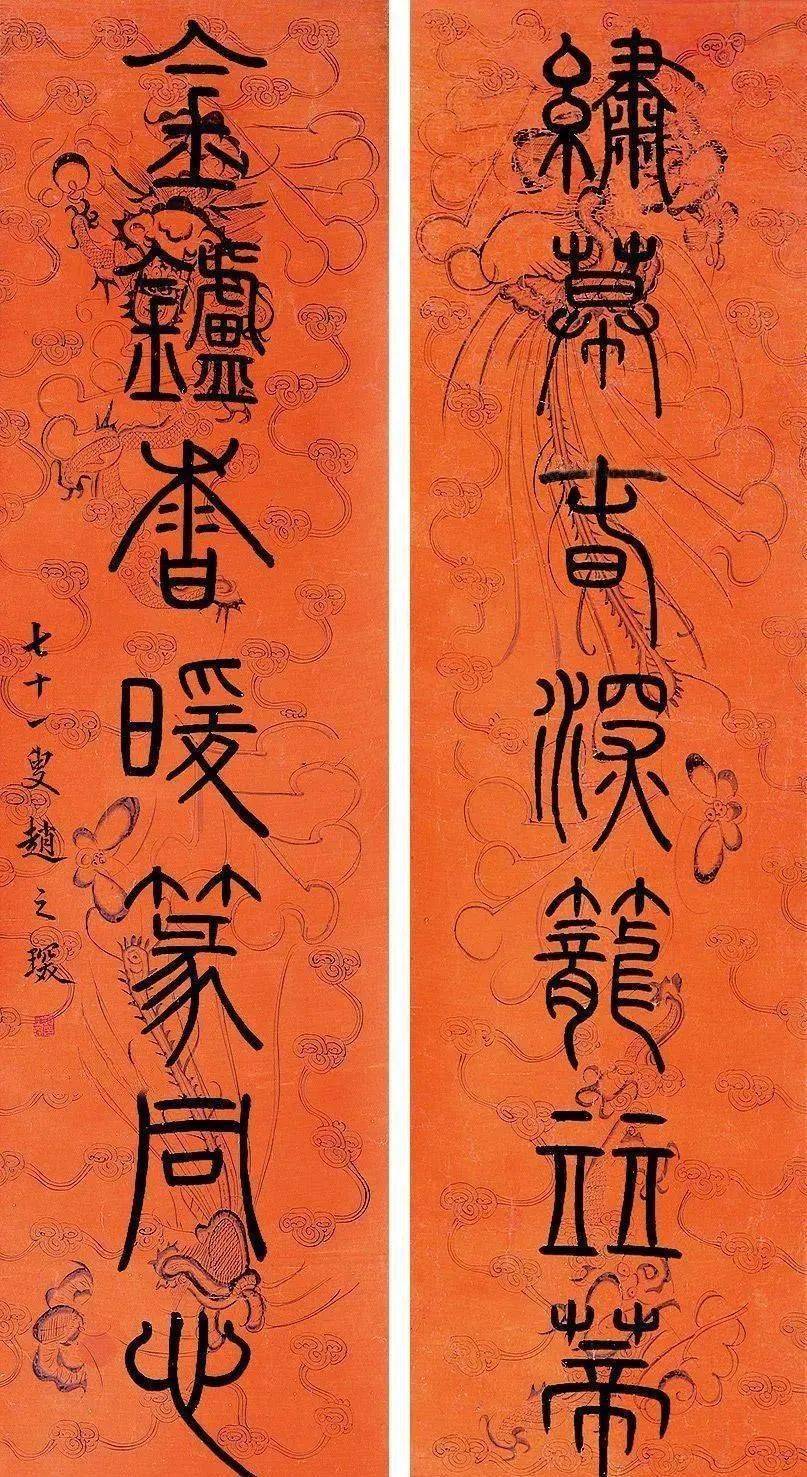 繡幕春深籠竝蒂
金鑪香暖篆同心
七十一叟趙之琛